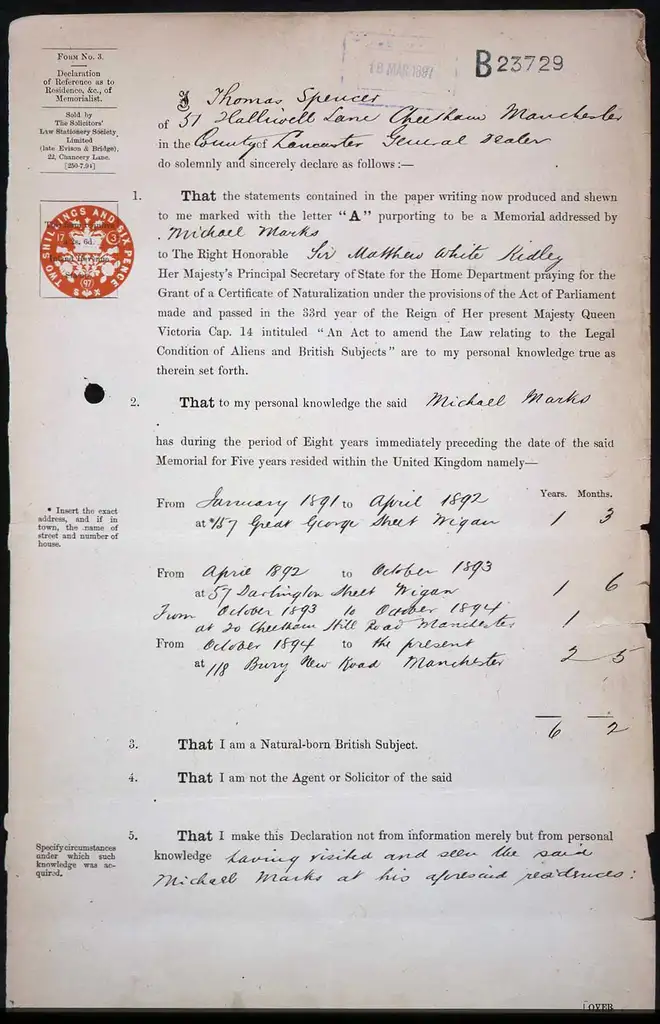 FORM No. 3.
Declaration
of Reference as to
Residence, &c., of
Memorialist.
Sold by
The Solicitors'
Law Stationery Society,
Limited
(late Evison & Bridge),
22, Chancery Lane.
[250-7.94]
18 MAR 1897
B23729
I Thomas Spencer
of 51 Halliwell Lane Cheetham Manchester
in the County of Lancaster General Dealer
do solemnly and sincerely declare as follows :—
TWO SHILLINGS AND SIX PENCE
17
97
1. That the statements contained in the paper writing now produced and shewn
to me marked with the letter "A" purporting to be a Memorial addressed by
Michael Marks
to The Right Honorable Sir Matthew White Ridley
Her Majesty's Principal Secretary of State for the Home Department praying for the
Grant of a Certificate of Naturalization under the provisions of the Act of Parliament
made and passed in the 33rd year of the Reign of Her present Majesty Queen
Victoria Cap. 14 intituled "An Act to amend the Law relating to the Legal
Condition of Aliens and British Subjects" are to my personal knowledge true as
therein set forth.
2. That to my personal knowledge the said Michael Marks
has during the period of Eight years immediately preceding the date of the said
Memorial for Five years resided within the United Kingdom namely—
* Insert the exact
address, and if in
town, the name of
street and number of
house.
Years. Months.
From January 1891 to April 1892
at * 157 Great George Street Wigan 1 3
From April 1892 to October 1893
at 57 Darlington Street Wigan 1 6
From October 1893 to October 1894
at 20 Cheetham Hill Road Manchester 1
From October 1894 to the present
at 118 Bury New Road Manchester 2 5
6 2
3. That I am a Natural-born British Subject.
4. That I am not the Agent or Solicitor of the said
5. That I make this Declaration not from information merely but from personal
knowledge having visited and seen the said
Michael Marks at his aforesaid residences:
Specify circumstances
under which such
knowledge was ac-
quired.
[OVER.